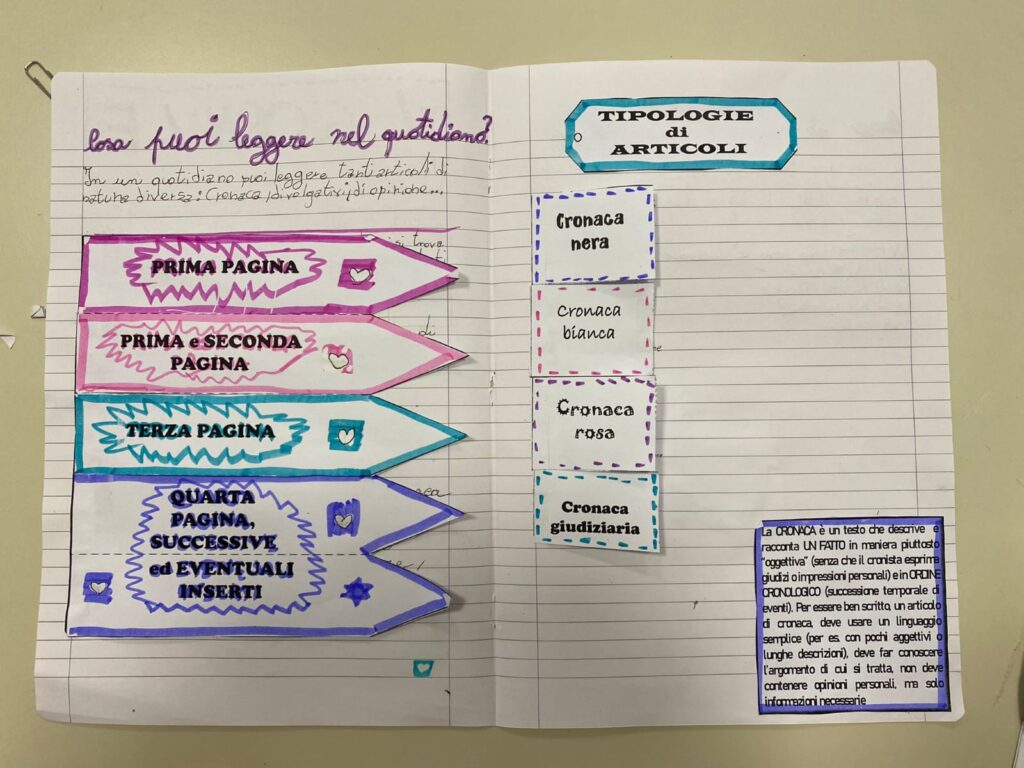 Cosa puoi leggere nel quotidiano?
In un quotidiano puoi leggere tanti articoli di
natura diversa: Cronaca, divulgativi, di opinione...
si trova
PRIMA PAGINA
di
PRIMA e SECONDA
PAGINA
TERZA PAGINA
QUARTA
PAGINA,
SUCCESSIVE
ed EVENTUALI
INSERTI
TIPOLOGIE
di
ARTICOLI
Cronaca
nera
Cronaca
bianca
Cronaca
rosa
Cronaca
giudiziaria
La CRONACA è un testo che descrive e
racconta UN FATTO in maniera piuttosto
"oggettiva" (senza che il cronista esprima
giudizi o impressioni personali) e in ORDINE
CRONOLOGICO (successione temporale di
eventi). Per essere ben scritto, un articolo
di cronaca, deve usare un linguaggio
semplice (per es. con pochi aggettivi o
lunghe descrizioni), deve far conoscere
l'argomento di cui si tratta, non deve
contenere opinioni personali, ma solo
informazioni necessarie